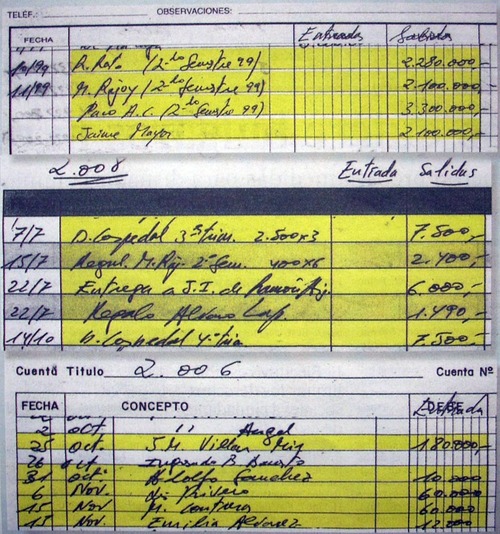 TELÉF.: OBSERVACIONES:
FECHA Entradas Salidas
10/99 R. Rato (2º Semestre 99) 2.280.000,-
11/99 M. Rajoy (2º Semestre 99) 2.100.000,-
Paco A.C. (2º Semestre 99) 3.300.000,-
Jaime Mayor 2.100.000,-
2.008 Entrada Salidas
7/7 D. Cospedal 3º trim. 2.500x3 7.500,-
15/7 M. Raj. 2º Sem. 400x6 2.400,-
22/7 Entrega a J.I. de 6.000,-
22/7 Regalo Alvaro Lap. 1.490,-
14/10 D. Cospedal 4º tri 7.500,-
Cuenta Titulo 2.006 Cuenta Nº
FECHA CONCEPTO DEBE
2 oct. " Angel
25 oct. J.M. Villar Mir 180.000,-
26 oct. Ingresado B
31 oct. Adolfo Sanchez 10.000
6 Nov. Rivero 60.000
15 Nov. M. Contreras 60.000
15 Nov. Emilio Alvarez 12.200